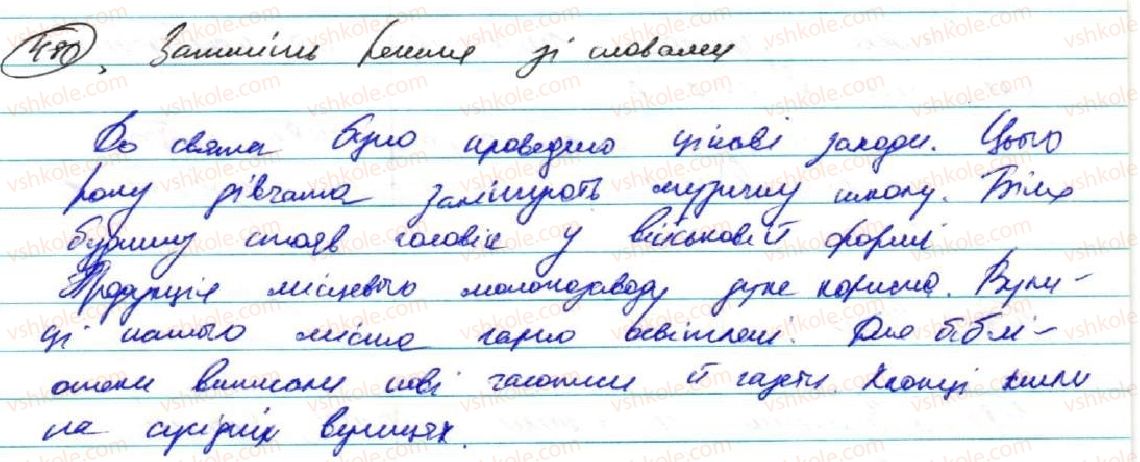 480, Запишіть речення зі словами
До свята було проведено цікаві заходи. Цього
року дівчата закінчують музичну школу. Біля
будинку стояв чоловік у військовій формі
Продукція місцевого молокозаводу дуже корисна. Вули-
ці нашого міста гарно освітлені. Для біблі-
отеки виписали нові часописи й газети. Хлопці жили
на сусідніх вулицях.